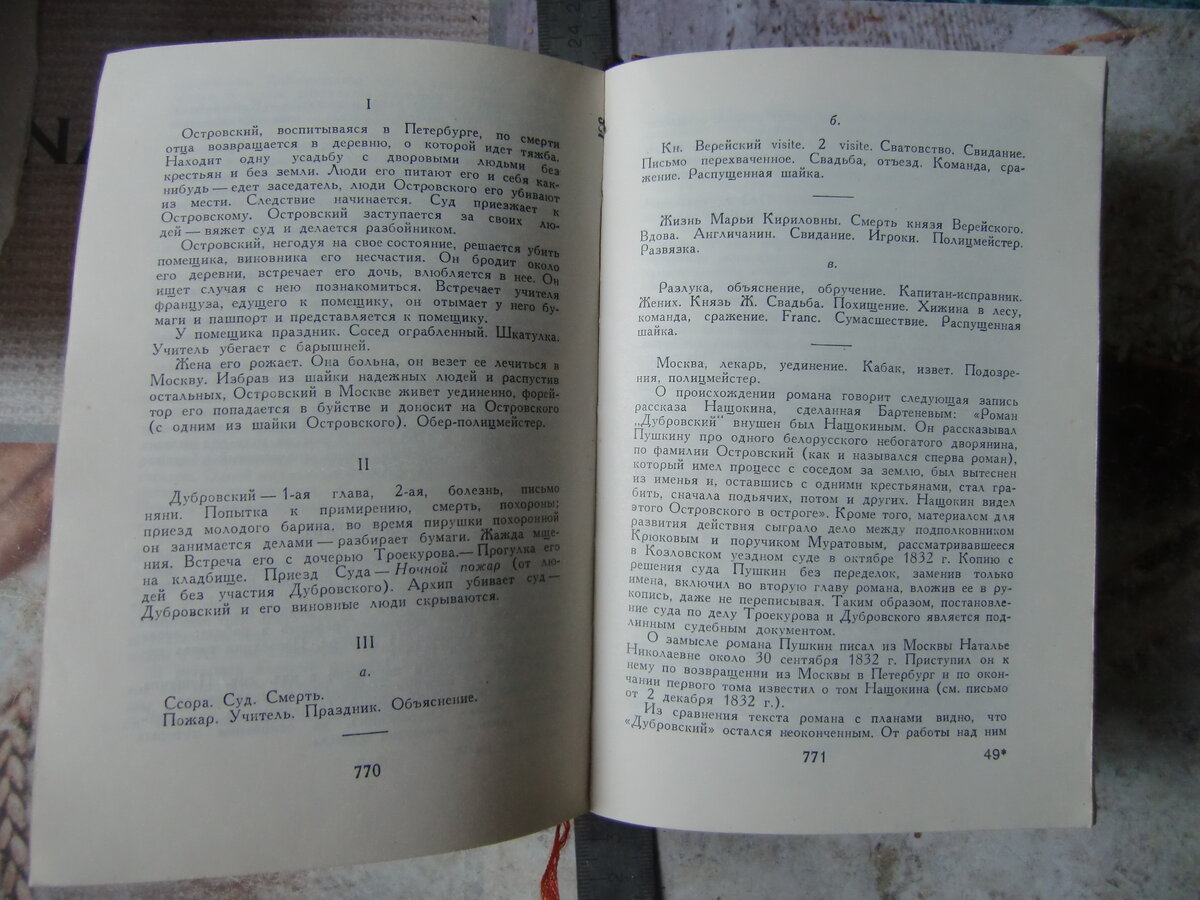 I
Островский, воспитываяся в Петербурге, по смерти
отца возвращается в деревню, о которой идет тяжба.
Находит одну усадьбу с дворовыми людьми без
крестьян и без земли. Люди его питают его и себя как-
нибудь — едет заседатель, люди Островского его убивают
из мести. Следствие начинается. Суд приезжает к
Островскому. Островский заступается за своих лю-
дей — вяжет суд и делается разбойником.
Островский, негодуя на свое состояние, решается убить
помещика, виновника его несчастия. Он бродит около
его деревни, встречает его дочь, влюбляется в нее. Он
ищет случая с нею познакомиться. Встречает учителя
француза, едущего к помещику, он отымает у него бу-
маги и пашпорт и представляется к помещику.
У помещика праздник. Сосед ограбленный. Шкатулка.
Учитель убегает с барышней.
Жена его рожает. Она больна, он везет ее лечиться в
Москву. Избрав из шайки надежных людей и распустив
остальных, Островский в Москве живет уединенно, форей-
тор его попадается в буйстве и доносит на Островского
(с одним из шайки Островского). Обер-полицмейстер.
II
Дубровский — 1-ая глава, 2-ая, болезнь, письмо
няни. Попытка к примирению, смерть, похороны;
приезд молодого барина, во время пирушки похоронной
он занимается делами — разбирает бумаги. Жажда мще-
ния. Встреча его с дочерью Троекурова.— Прогулка его
на кладбище. Приезд Суда — Ночной пожар (от лю-
дей без участия Дубровского). Архип убивает суд —
Дубровский и его виновные люди скрываются.
III
а.
Ссора. Суд. Смерть.
Пожар. Учитель. Праздник. Объяснение.
770
б.
Кн. Верейский visite. 2 visite. Сватовство. Свидание.
Письмо перехваченное. Свадьба, отъезд. Команда, сра-
жение. Распущенная шайка.
Жизнь Марьи Кириловны. Смерть князя Верейского.
Вдова. Англичанин. Свидание. Игроки. Полицмейстер.
Развязка.
в.
Разлука, объяснение, обручение. Капитан-исправник.
Жених. Князь Ж. Свадьба. Похищение. Хижина в лесу,
команда, сражение. Franc. Сумасшествие. Распущенная
шайка.
Москва, лекарь, уединение. Кабак, извет. Подозре-
ния, полицмейстер.
О происхождении романа говорит следующая запись
рассказа Нащокина, сделанная Бартеневым: «Роман
„Дубровский“ внушен был Нащокиным. Он рассказывал
Пушкину про одного белорусского небогатого дворянина,
по фамилии Островский (как и назывался сперва роман),
который имел процесс с соседом за землю, был вытеснен
из именья и, оставшись с одними крестьянами, стал гра-
бить, сначала подьячих, потом и других. Нащокин видел
этого Островского в остроге». Кроме того, материалом для
развития действия сыграло дело между подполковником
Крюковым и поручиком Муратовым, рассматривавшееся
в Козловском уездном суде в октябре 1832 г. Копию с
решения суда Пушкин без переделок, заменив только
имена, включил во вторую главу романа, вложив ее в ру-
копись, даже не переписывая. Таким образом, постановле-
ние суда по делу Троекурова и Дубровского является под-
линным судебным документом.
О замысле романа Пушкин писал из Москвы Наталье
Николаевне около 30 сентября 1832 г. Приступил он к
нему по возвращении из Москвы в Петербург и по окон-
чании первого тома известил о том Нащокина (см. письмо
от 2 декабря 1832 г.).
Из сравнения текста романа с планами видно, что
«Дубровский» остался неоконченным. От работы над ним
771
49*
24